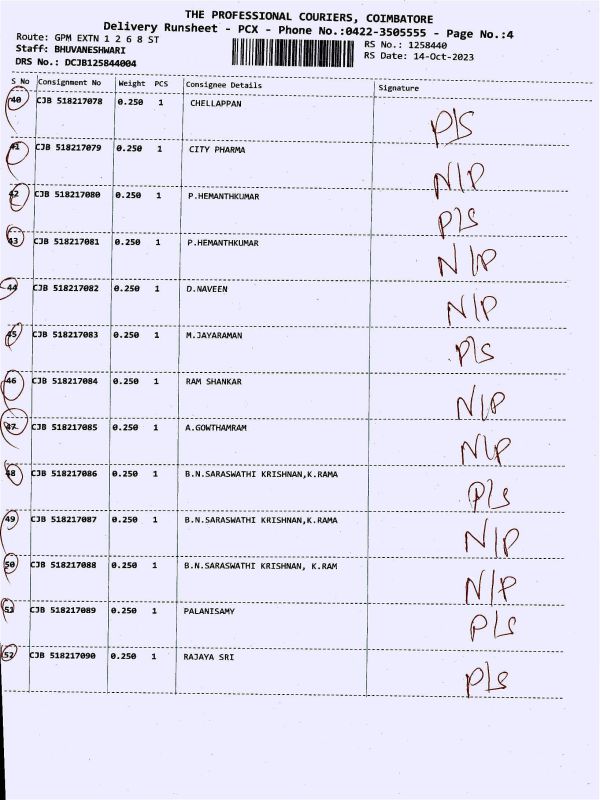 THE PROFESSIONAL COURIERS, COIMBATORE
Delivery Runsheet - PCX - Phone No.:0422-3505555 - Page No.:4
Route: GPM EXTN 1 2 6 8 ST RS No.: 1258440
Staff: BHUVANESHWARI RS Date: 14-Oct-2023
DRS No.: DCJB125844004
S No Consignment No Weight PCS Consignee Details Signature
40 CJB 518217078 0.250 1 CHELLAPPAN P/S
41 CJB 518217079 0.250 1 CITY PHARMA N/P
42 CJB 518217080 0.250 1 P.HEMANTHKUMAR P/S
43 CJB 518217081 0.250 1 P.HEMANTHKUMAR N/P
44 CJB 518217082 0.250 1 D.NAVEEN N/P
45 CJB 518217083 0.250 1 M.JAYARAMAN P/S
46 CJB 518217084 0.250 1 RAM SHANKAR N/P
47 CJB 518217085 0.250 1 A.GOWTHAMRAM N/P
48 CJB 518217086 0.250 1 B.N.SARASWATHI KRISHNAN,K.RAMA P/S
49 CJB 518217087 0.250 1 B.N.SARASWATHI KRISHNAN,K.RAMA N/P
50 CJB 518217088 0.250 1 B.N.SARASWATHI KRISHNAN, K.RAM N/P
51 CJB 518217089 0.250 1 PALANISAMY P/S
52 CJB 518217090 0.250 1 RAJAYA SRI P/S